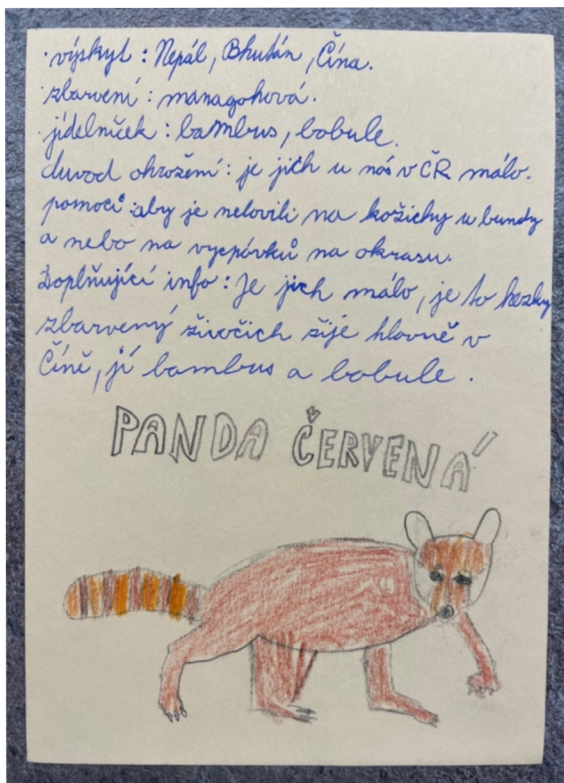 ·výskyt : Nepál, Bhután, Čína.
·zbarvení : managohová.
·jídelníček : bambus, bobule.
duvod ohrožení : je jich u nás v ČR málo.
pomoci : aby je nelovili na kožichy u bundy
a nebo na vycpávků na okrasu.
Doplňující info : Je jich málo, je to hezky
zbarvený živočich žije hlavně v
Číně, jí bambus a bobule .
PANDA ČERVENÁ